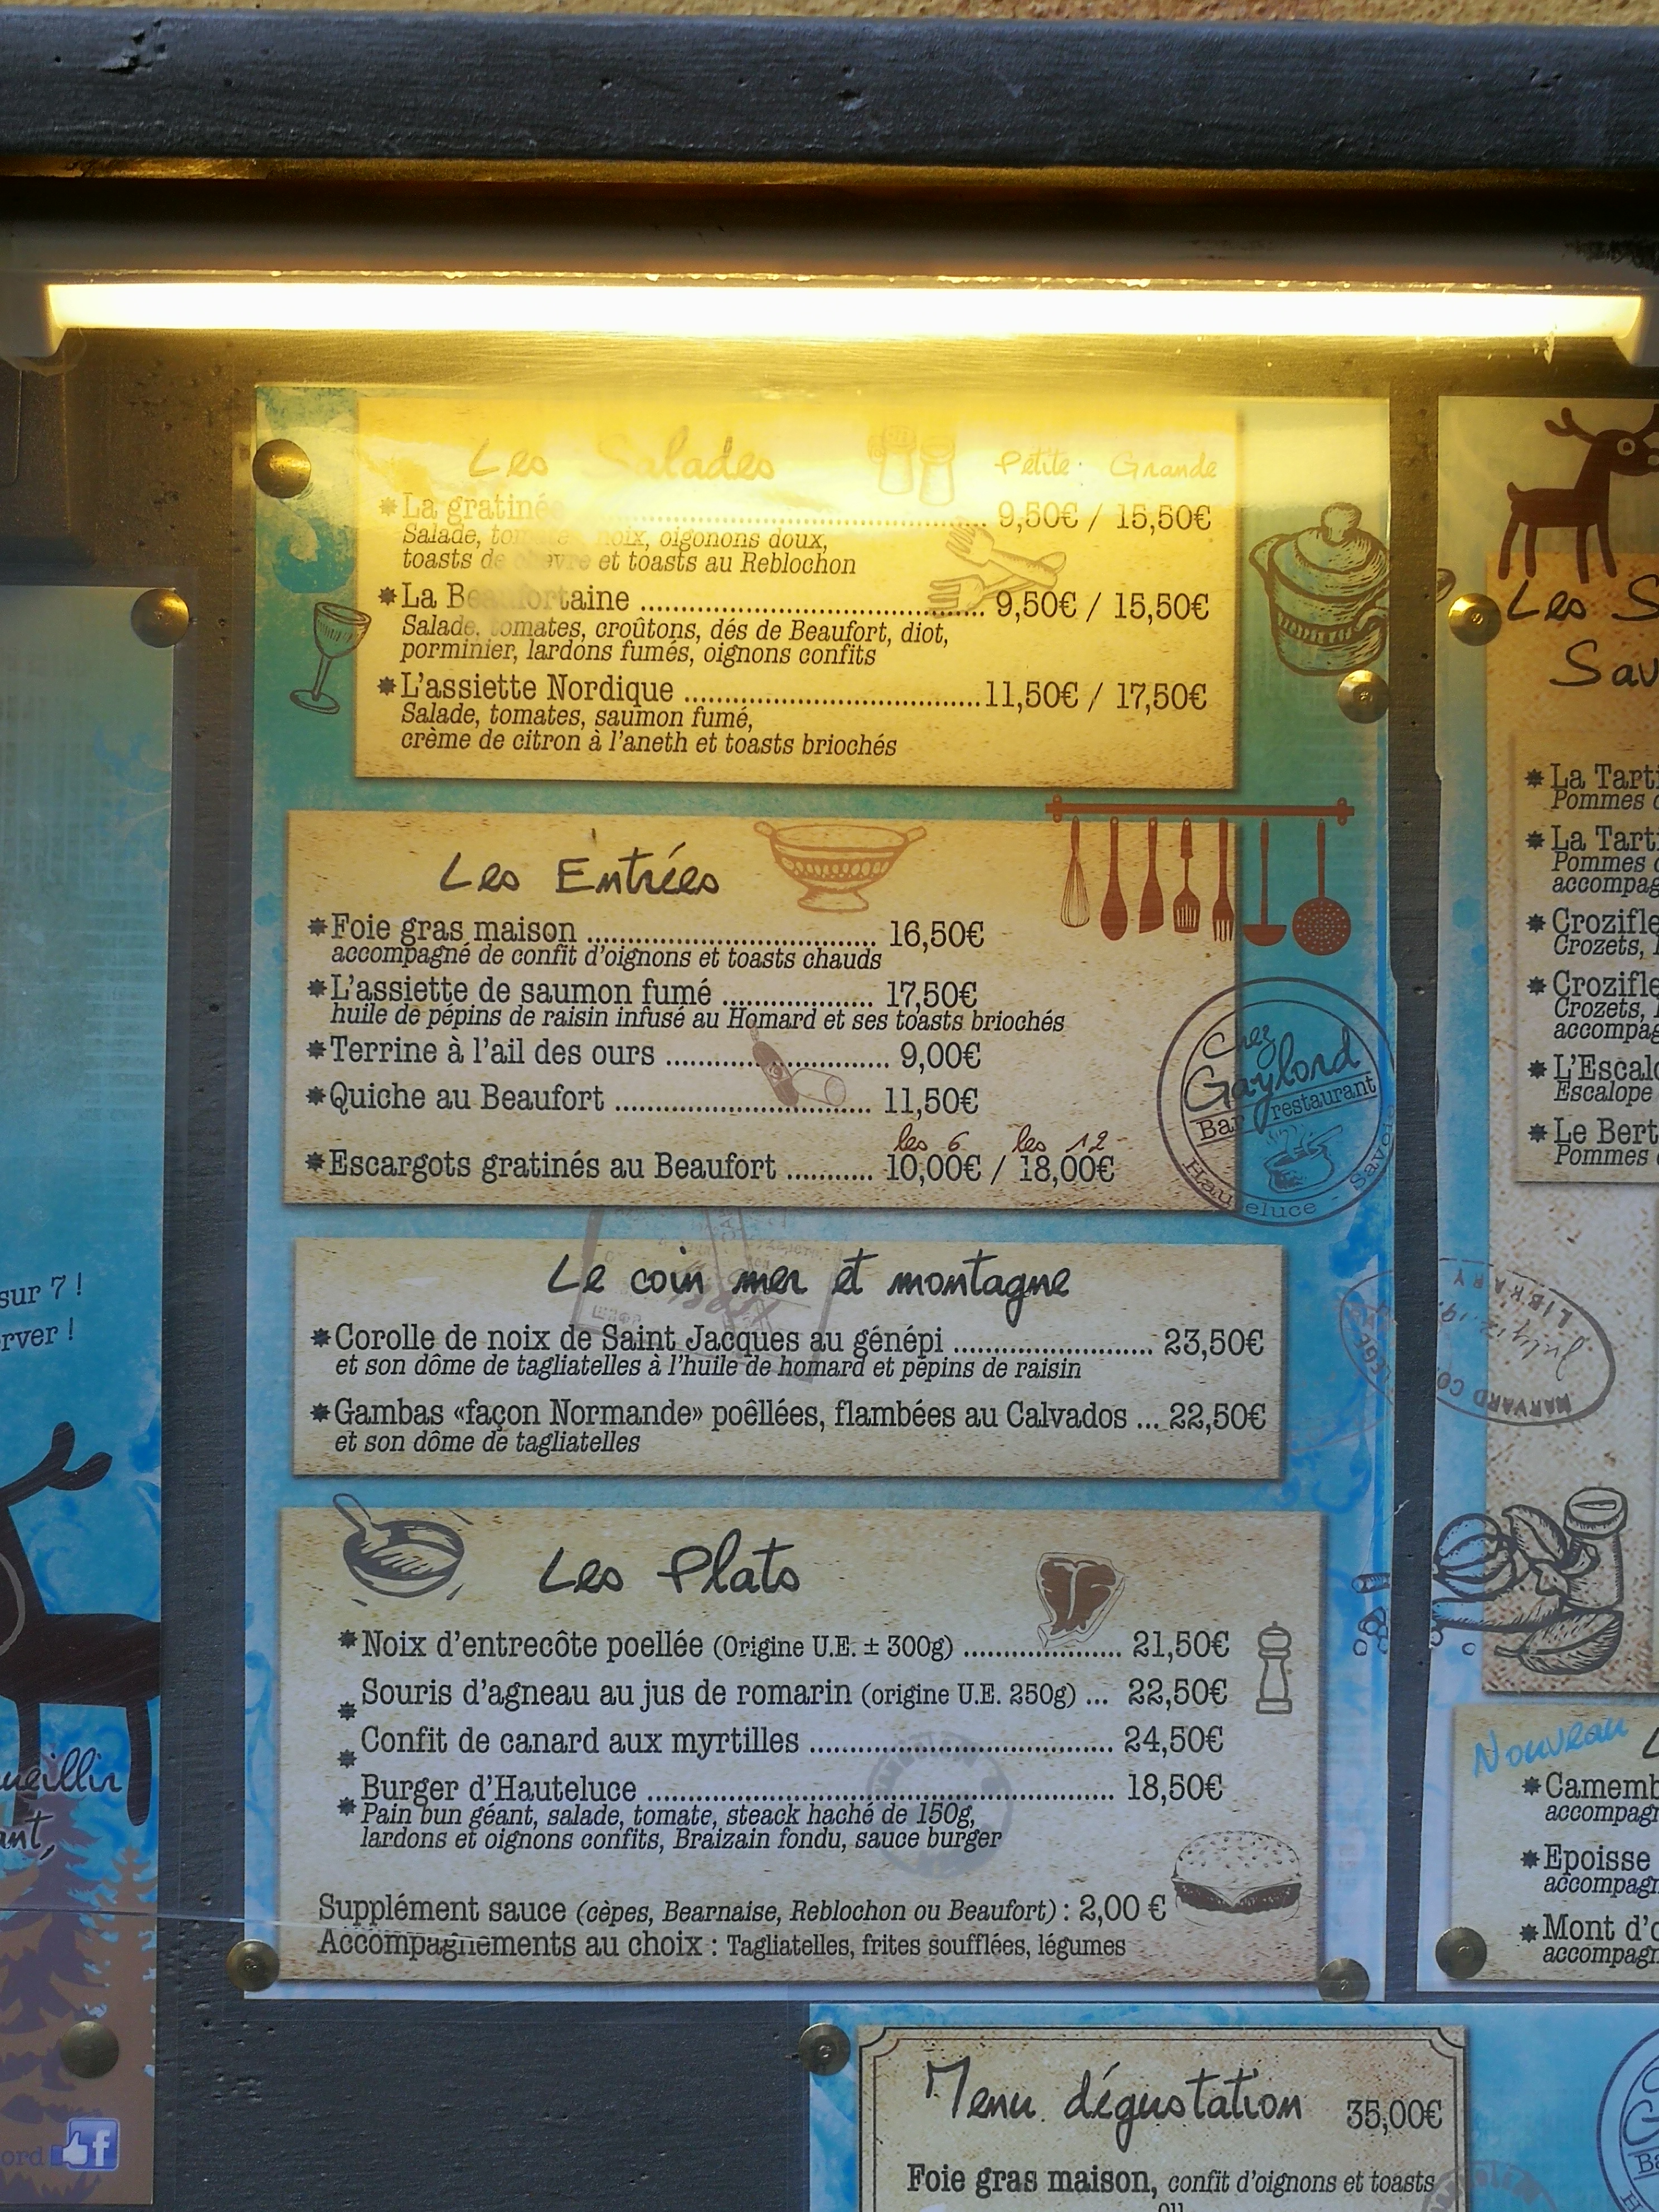 Les Salades
Petite : Grande
La gratinée ........ 9,50€ / 15,50€
Salade, tomates, noix, oigonons doux,
toasts de chèvre et toasts au Reblochon
La Beaufortaine ........ 9,50€ / 15,50€
Salade, tomates, croûtons, dés de Beaufort, diot,
porminier, lardons fumés, oignons confits
L'assiette Nordique ........ 11,50€ / 17,50€
Salade, tomates, saumon fumé,
crème de citron à l'aneth et toasts briochés
Les Entrées
Foie gras maison ........ 16,50€
accompagné de confit d'oignons et toasts chauds
L'assiette de saumon fumé ........ 17,50€
huile de pépins de raisin infusé au Homard et ses toasts briochés
Terrine à l'ail des ours ........ 9,00€
Quiche au Beaufort ........ 11,50€
les 6 les 12
Escargots gratinés au Beaufort ........ 10,00€ / 18,00€
Chez
Gaylord
Bar restaurant
Hauteluce - Savoie
Le coin mer et montagne
Corolle de noix de Saint Jacques au génépi ........ 23,50€
et son dôme de tagliatelles à l'huile de homard et pépins de raisin
Gambas «façon Normande» poêllées, flambées au Calvados ... 22,50€
et son dôme de tagliatelles
Les Plats
Noix d'entrecôte poellée (Origine U.E. ± 300g) ........ 21,50€
Souris d'agneau au jus de romarin (origine U.E. 250g) ... 22,50€
Confit de canard aux myrtilles ........ 24,50€
Burger d'Hauteluce ........ 18,50€
Pain bun géant, salade, tomate, steack haché de 150g,
lardons et oignons confits, Braizain fondu, sauce burger
Supplément sauce (cèpes, Bearnaise, Reblochon ou Beaufort) : 2,00 €
Accompagnements au choix : Tagliatelles, frites soufflées, légumes
Menu dégustation 35,00€
Foie gras maison, confit d'oignons et toasts
ou
sur 7 !
Les
La
Pommes
La
Pommes
Crozets,
Crozets,
Escalope
Le
Pommes
LIBRARY
HARVARD
Nouveau
Epoisse
Mont